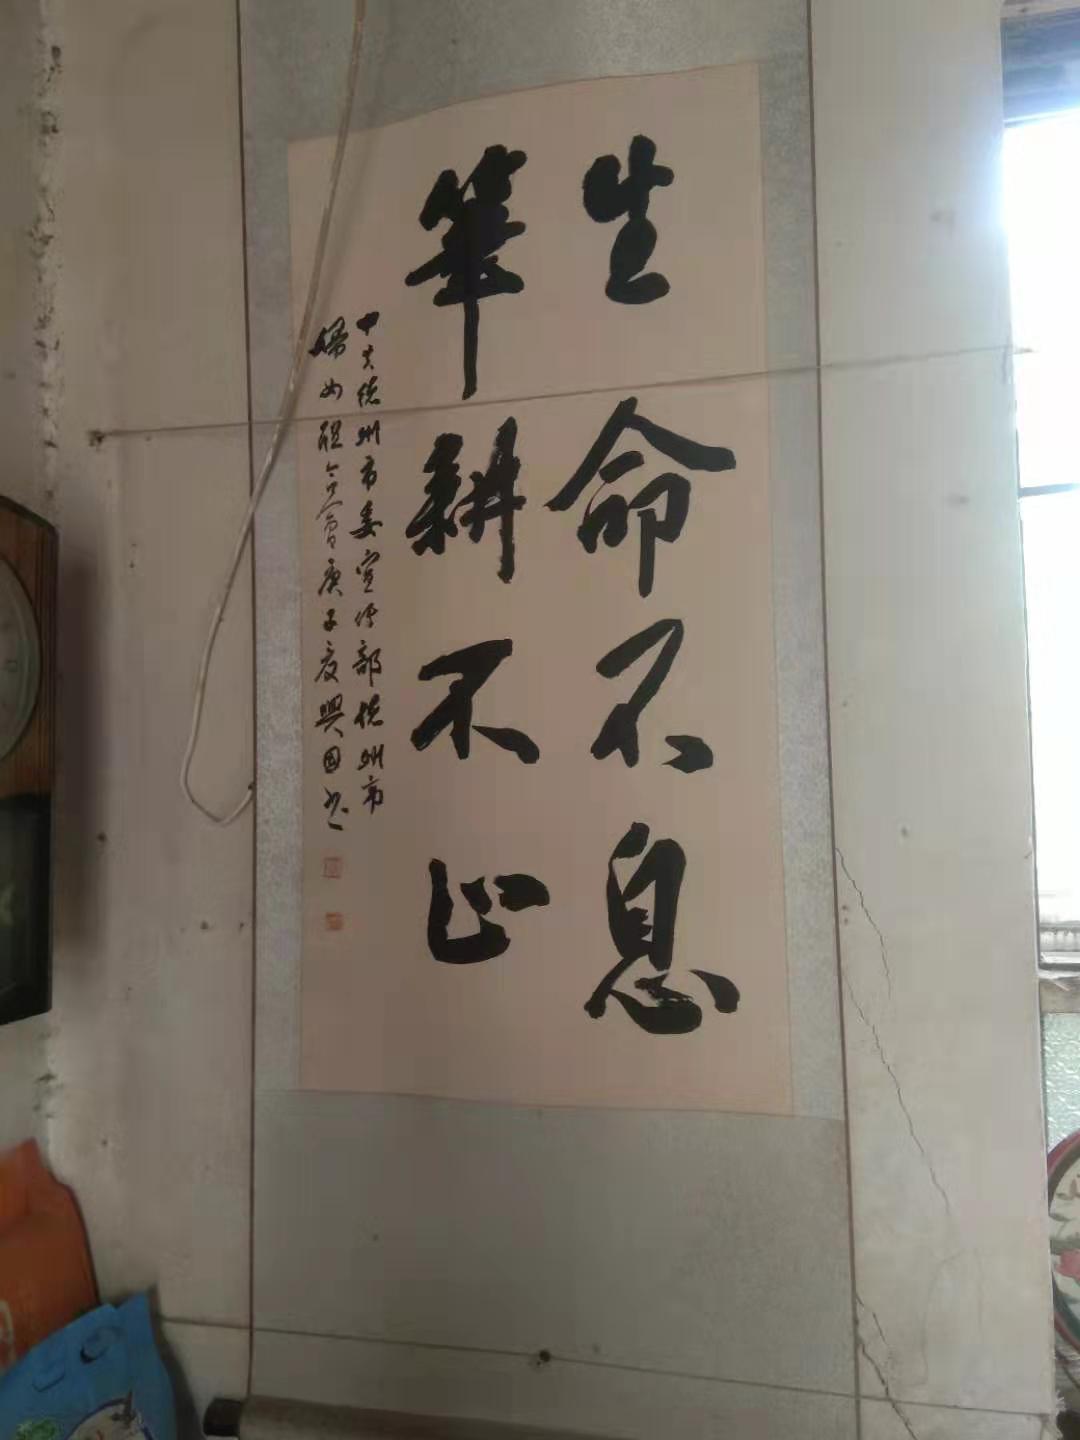 生命不息
筆耕不止
中共德州市委宣传部德州市
婦女联合會庚子夏興国书